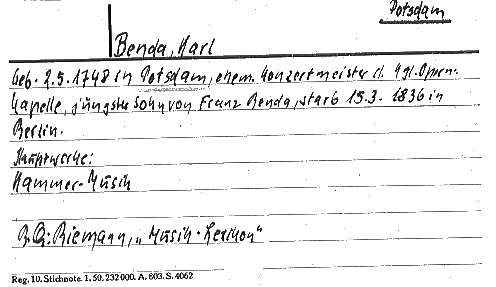 Potsdam
Benda, Karl
Geb. 2.5.1748 in Potsdam, ehem. Konzertmeister d. Kgl. Opern-
kapelle, jüngster Sohn von Franz Benda, starb 15.3.1836 in
Berlin.
Hauptwerke:
Kammer-Musik
B.Q.: Riemann, „Musik-Lexikon"
Reg. 10. Stichnote. 1. 50. 232000. A. 803. S. 4062